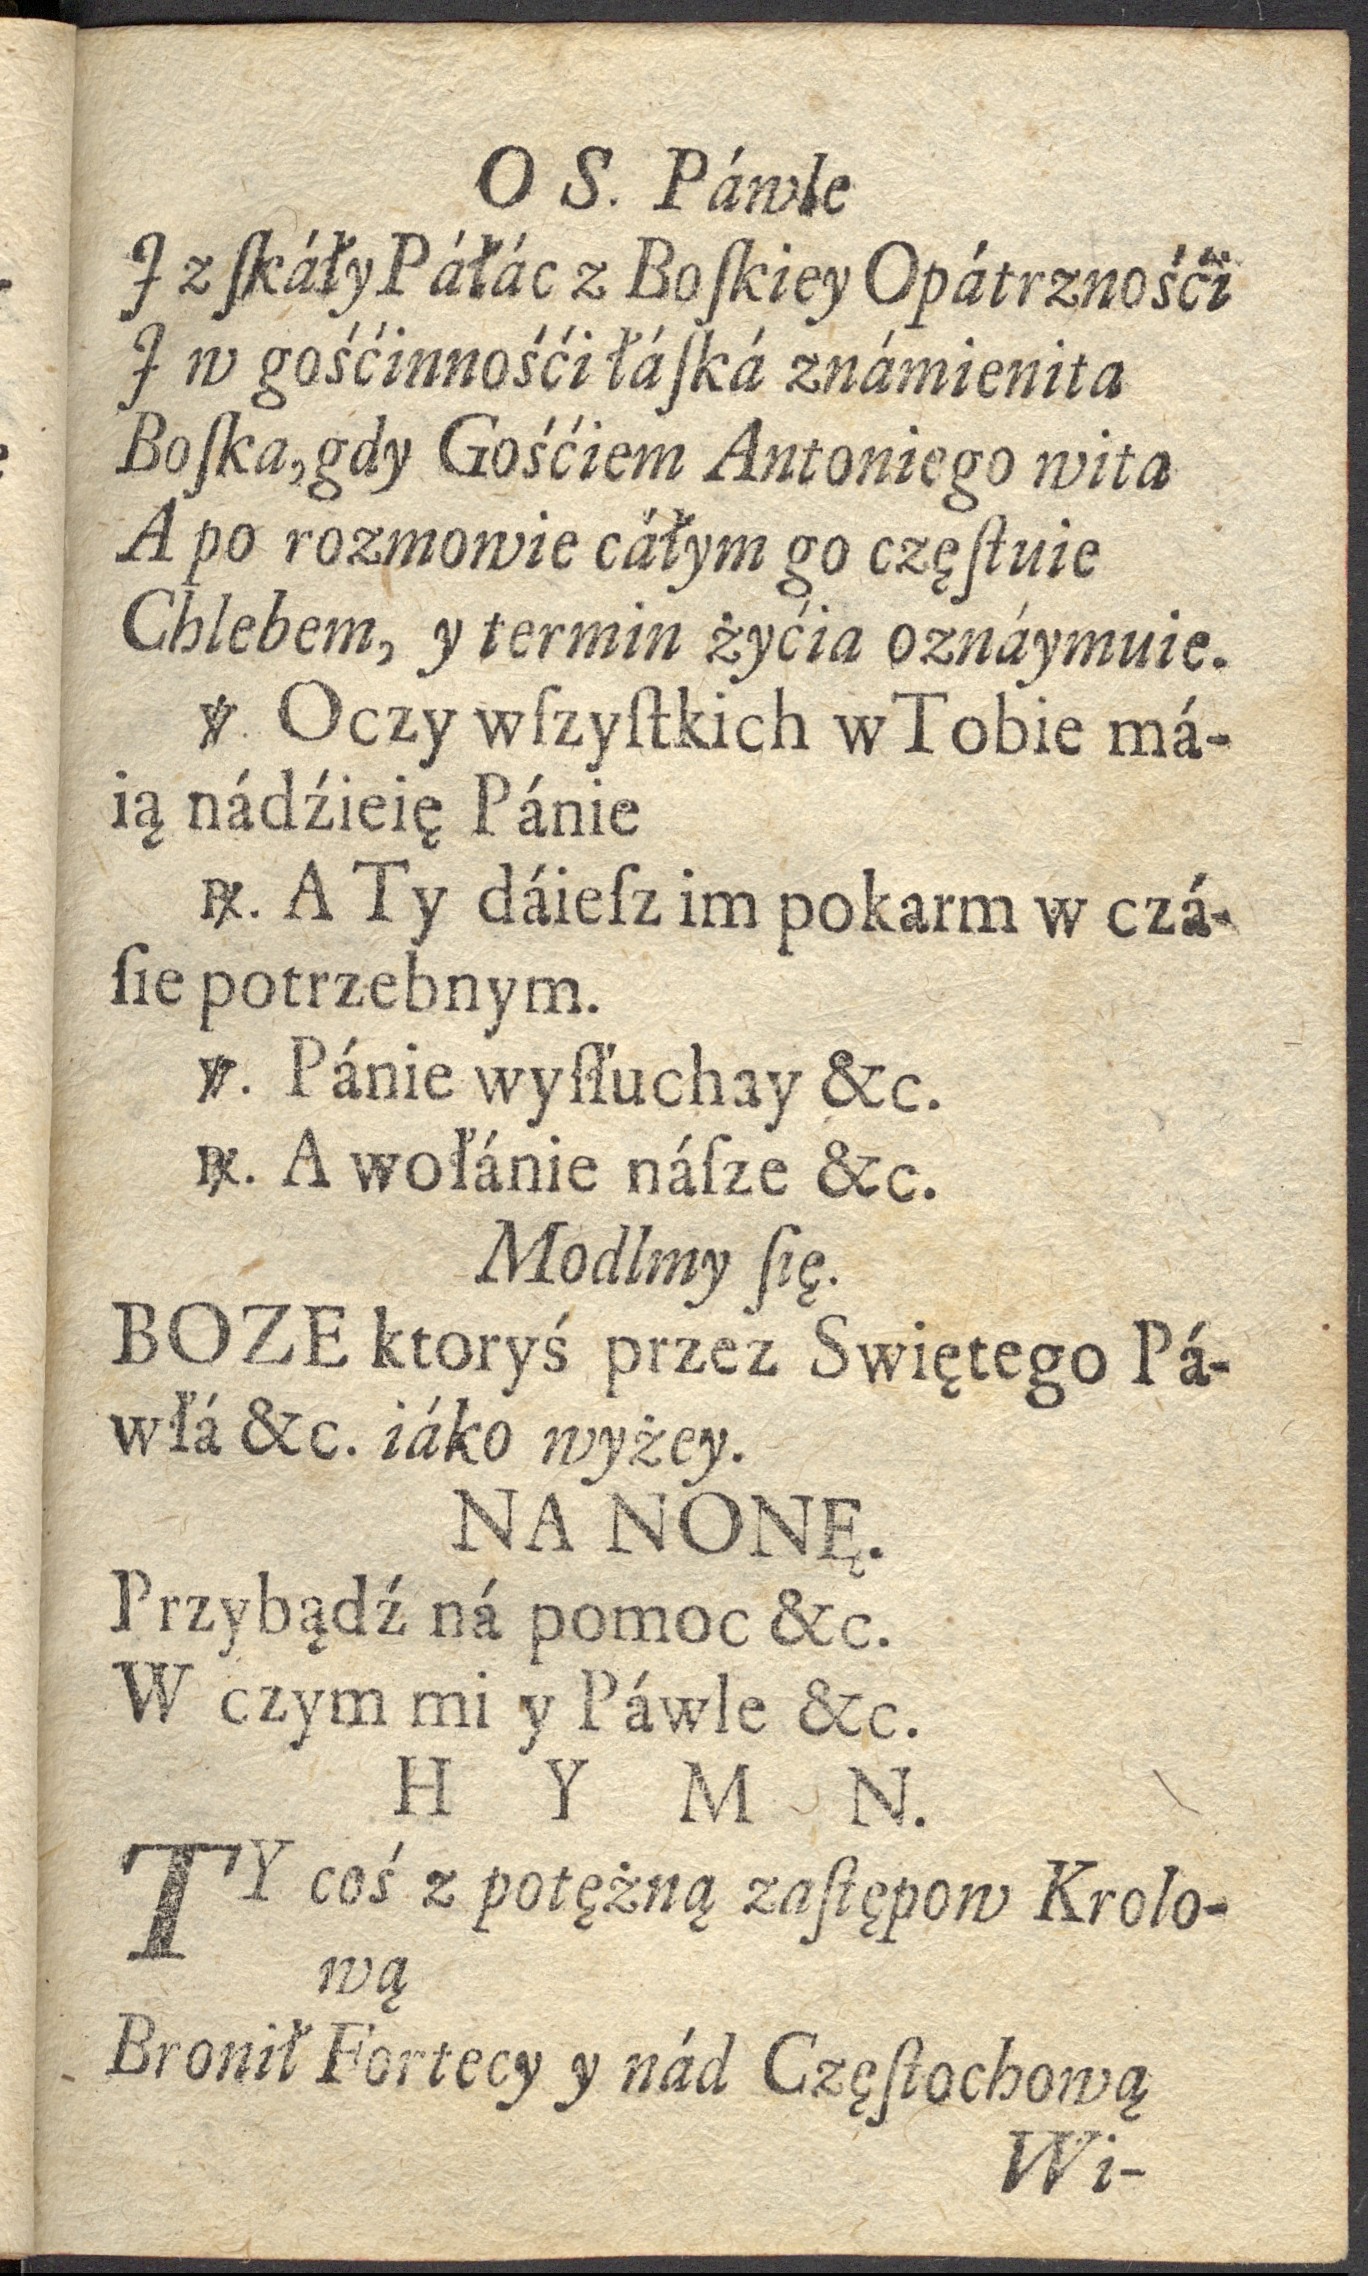 O S. Páwle
J z ſkáły Páłác z Boſkiey Opátrznośći
J w gośćinnośći łáſká známienita
Boſka, gdy Gośćiem Antoniego wita
A po rozmowie cáłym go częſtuie
Chlebem, y termin żyćia oznáymuie.
℣. Oczy wſzyſtkich w Tobie má-
ią nádźieię Pánie
℟. A Ty dáieſz im pokarm w czá-
ſie potrzebnym.
℣. Pánie wyſłuchay &c.
℟. A wołánie náſze &c.
Modlmy ſię.
BOZE ktoryś przez Swiętego Pá-
włá &c. iáko wyżey.
NA NONĘ.
Przybądź ná pomoc &c.
W czym mi y Páwle &c.
H Y M N.
TY coś z potężną zaſtępow Krolo-
wą
Bronił Fortecy y nád Częſtochową
Wi-